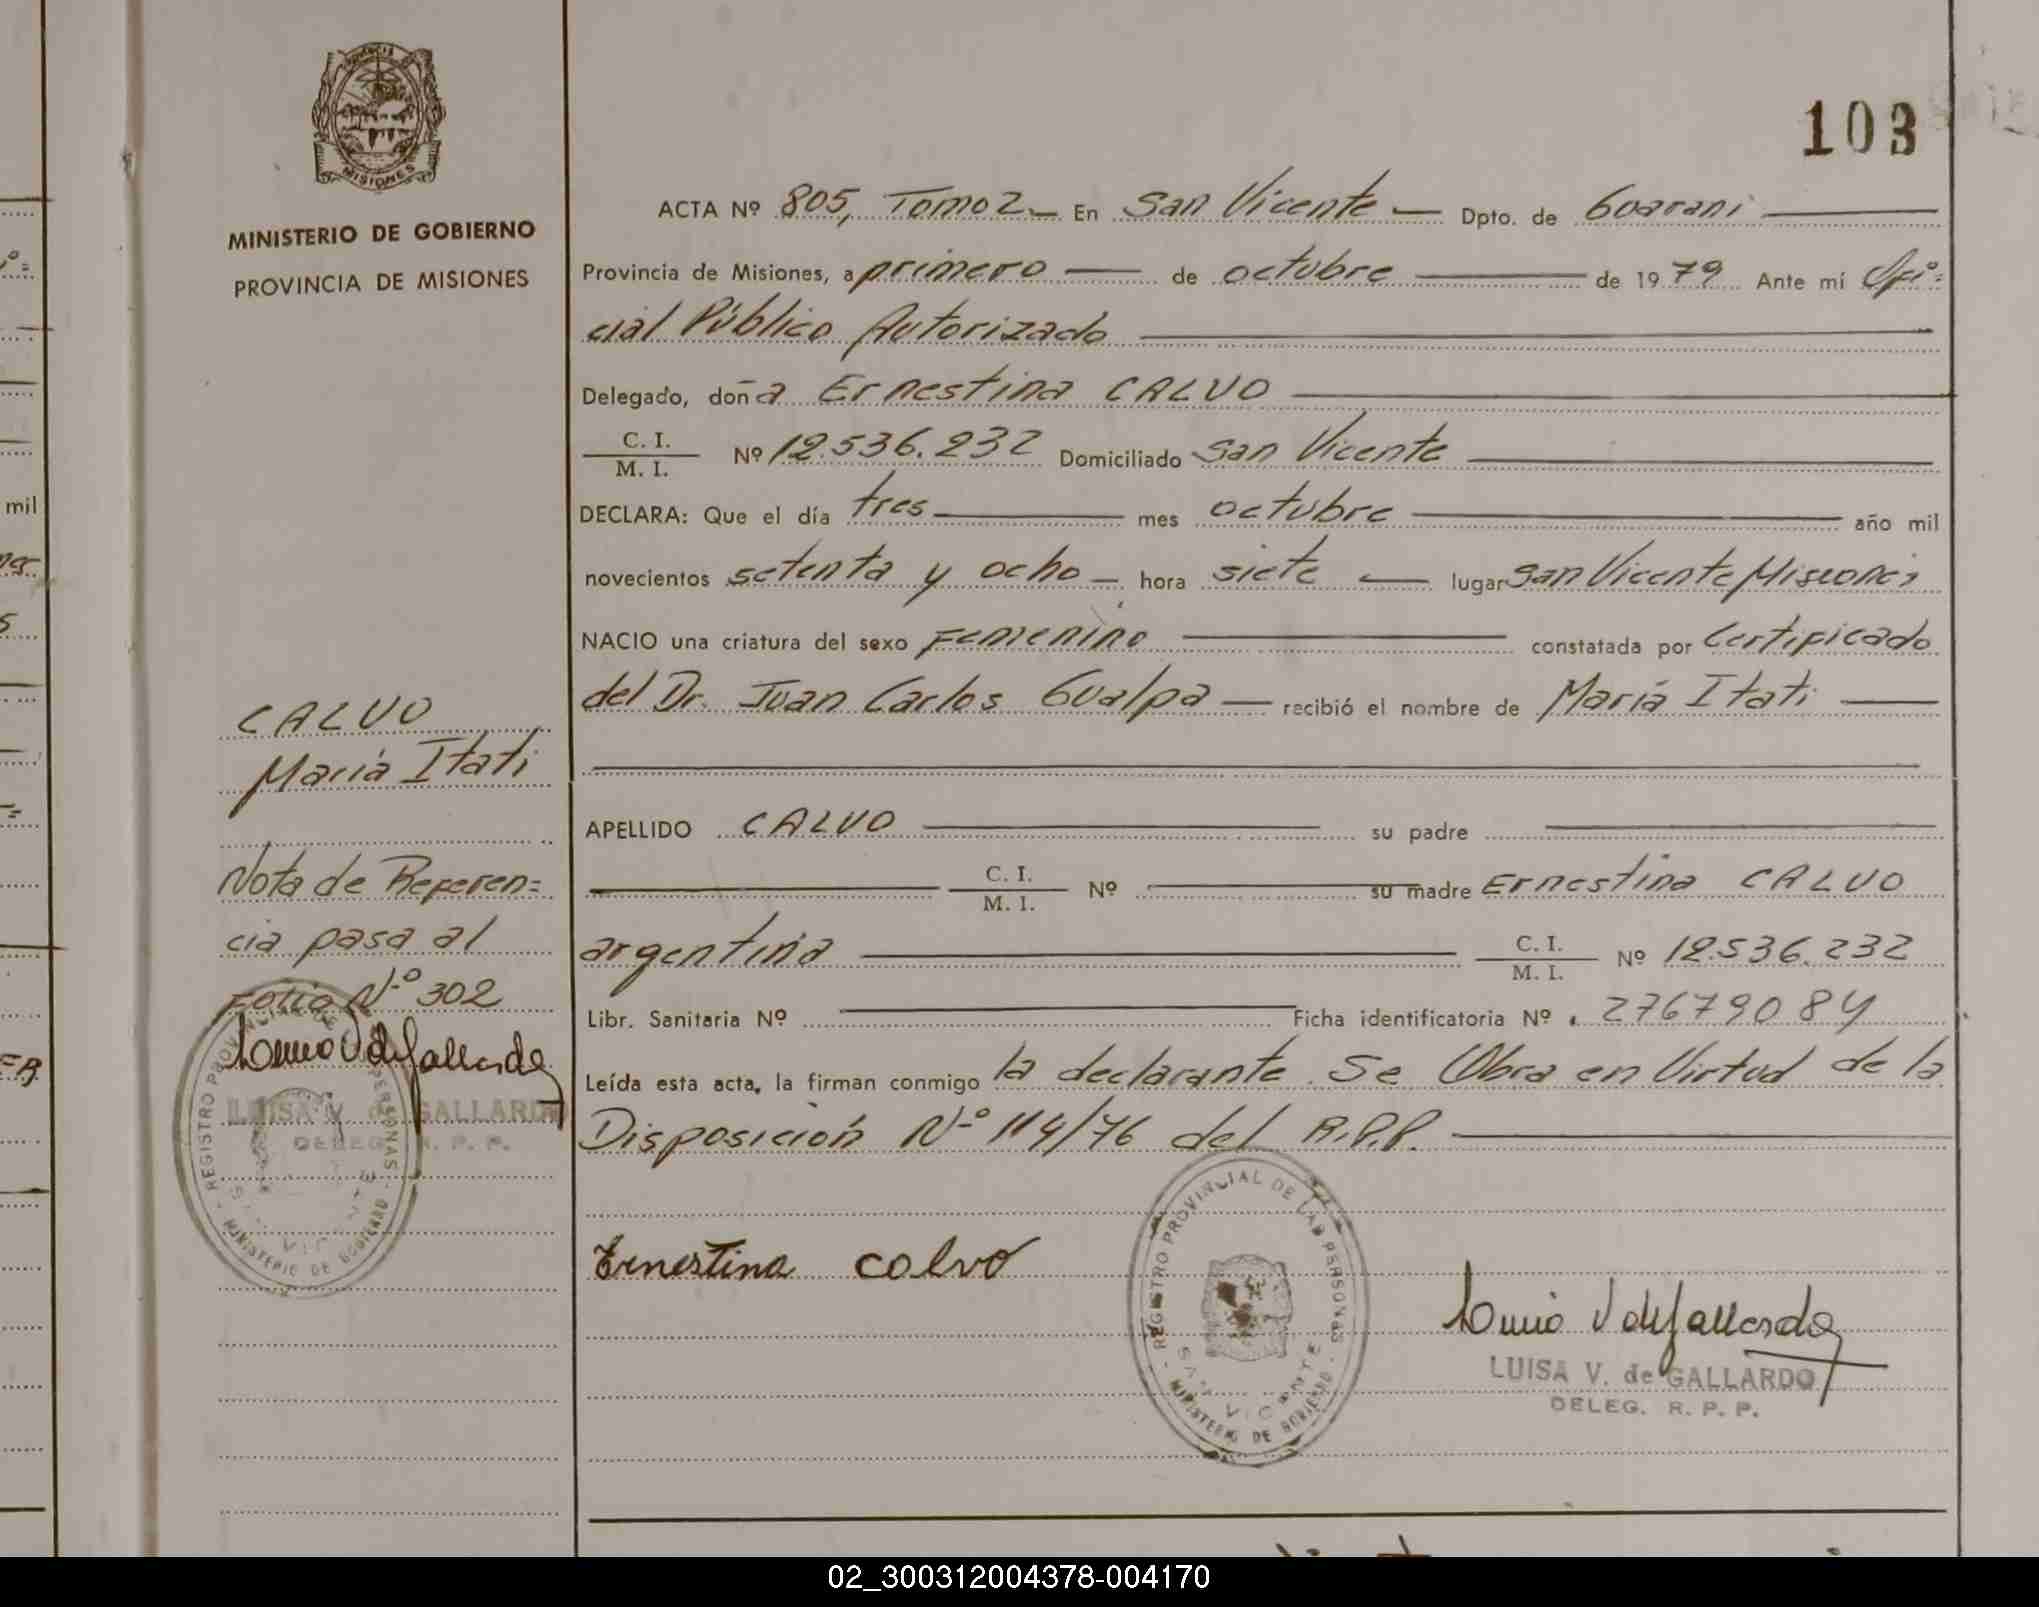 PROVINCIA DE
MISIONES
MINISTERIO DE GOBIERNO
PROVINCIA DE MISIONES
103
ACTA Nº 805, Tomo 2 — En San Vicente — Dpto. de Guarani
Provincia de Misiones, a primero — de octubre — de 1979 Ante mí Ofi=
cial Público Autorizado
Delegado, doña Ernestina CALVO
C. I.
M. I. Nº 12.536.232 Domiciliado San Vicente
DECLARA: Que el día tres — mes octubre — año mil
novecientos setenta y ocho — hora siete — lugar San Vicente Misiones
NACIO una criatura del sexo Femenino — constatada por Certificado
del Dr. Juan Carlos Gualpa — recibió el nombre de María Itati —
APELLIDO CALVO — su padre —
C. I.
M. I. Nº — su madre Ernestina CALVO
argentina — C. I.
M. I. Nº 12.536.232
Libr. Sanitaria Nº — Ficha identificatoria Nº 27679084
Leída esta acta, la firman conmigo la declarante. Se Obra en Virtud de la
Disposición Nº 114/76 del R.P.P. —
Ernestina Calvo
REGISTRO PROVINCIAL DE LAS PERSONAS
SAN VICENTE
MINISTERIO DE GOBIERNO
Luisa V de Gallardo
LUISA V. de GALLARDO
DELEG. R. P. P.
CALVO
María Itati
Nota de Referen=
cia pasa al
Folio Nº 302
Luisa V de Gallardo
LUISA V. de GALLARDO
DELEG. R. P. P.
REGISTRO PROVINCIAL DE LAS PERSONAS
SAN VICENTE
MINISTERIO DE GOBIERNO
mil
02_300312004378-004170